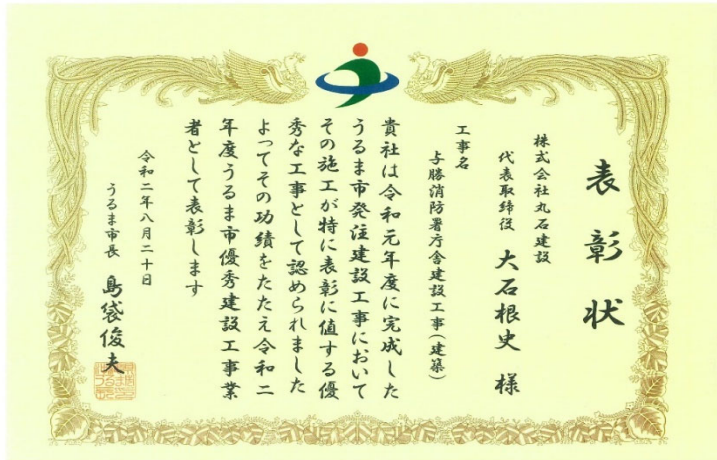 表彰状
株式会社丸石建設
代表取締役 大石根史 様
工事名
与勝消防署庁舎建設工事(建築)
貴社は令和元年度に完成した
うるま市発注建設工事において
その施工が特に表彰に値する優
秀な工事として認められました
よってその功績をたたえ令和二
年度うるま市優秀建設工事業
者として表彰します
令和二年八月二十日
うるま市長 島袋俊夫